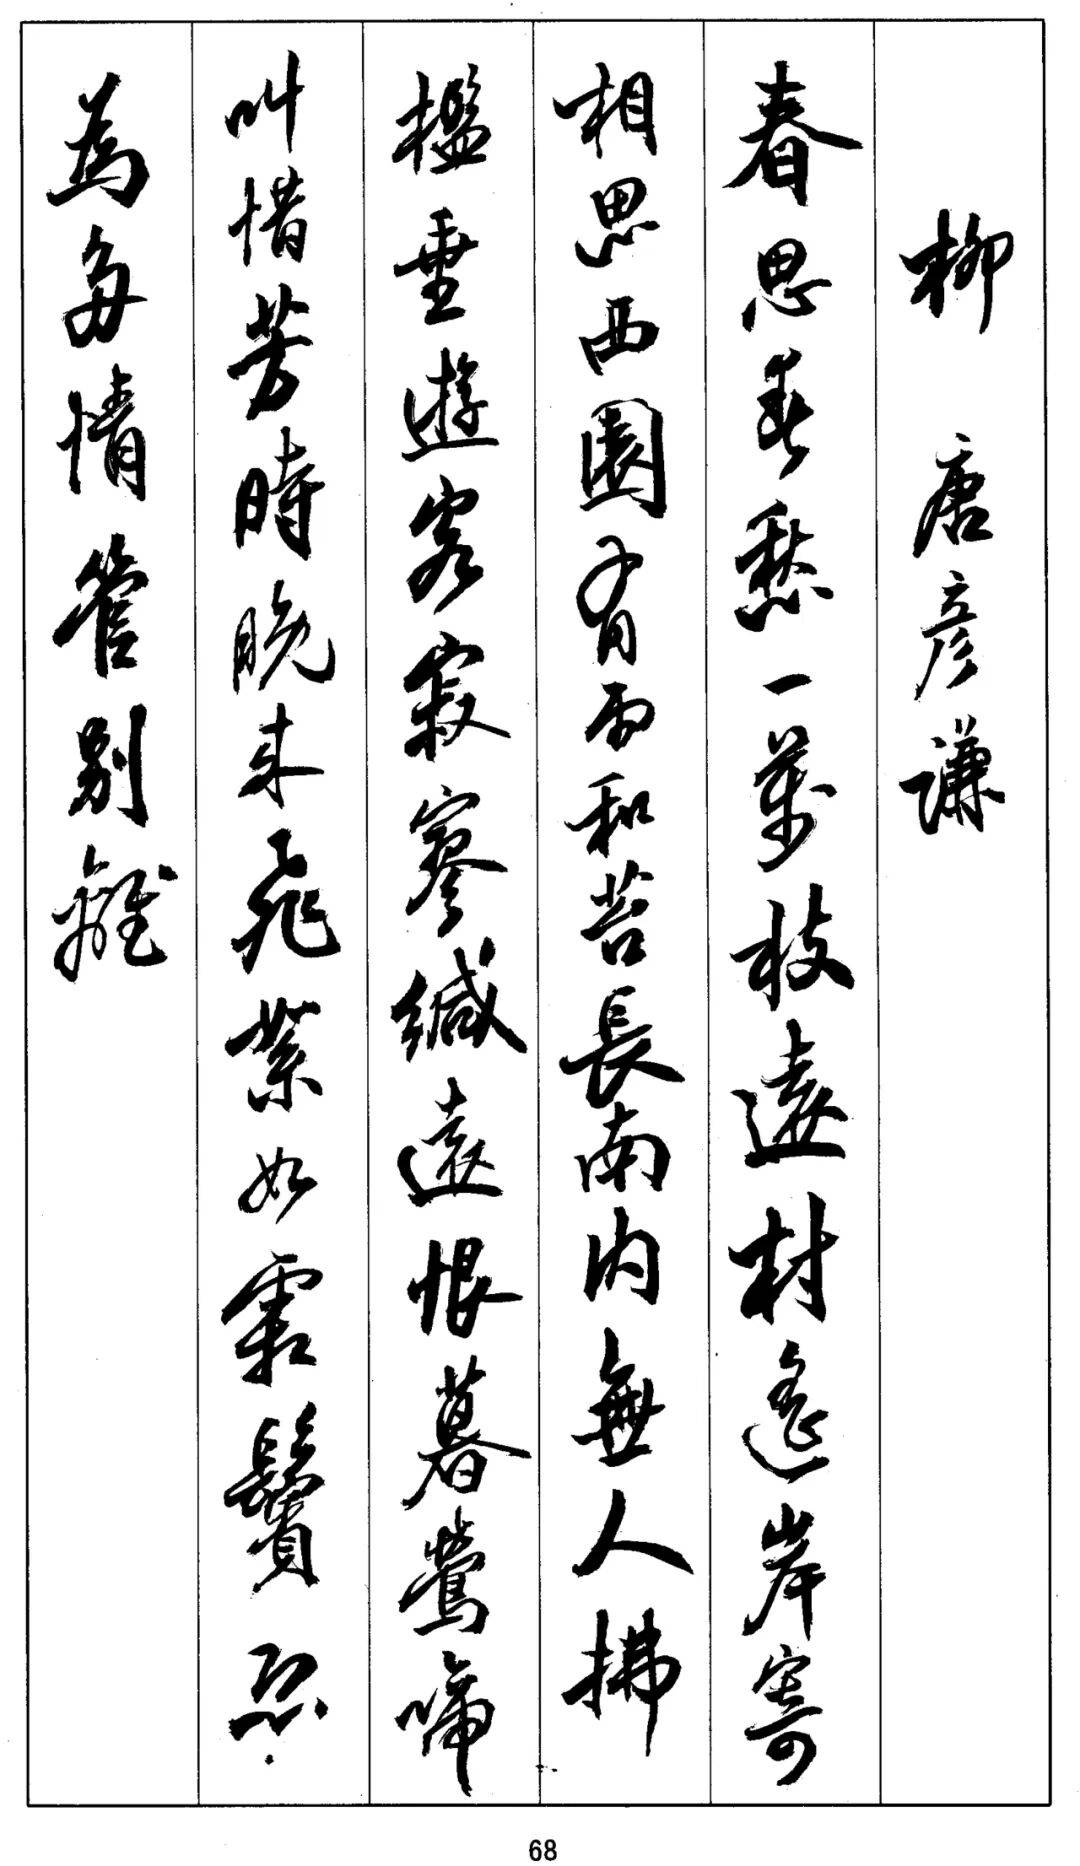 柳 唐彥謙
春思春愁一萬枝遠村遙岸寄
相思西園有雨和苔長南內無人拂
檻垂遊客寂寥緘遠恨暮鶯啼
叫惜芳時晚來飛絮如霜鬢恐
為多情管別離
68